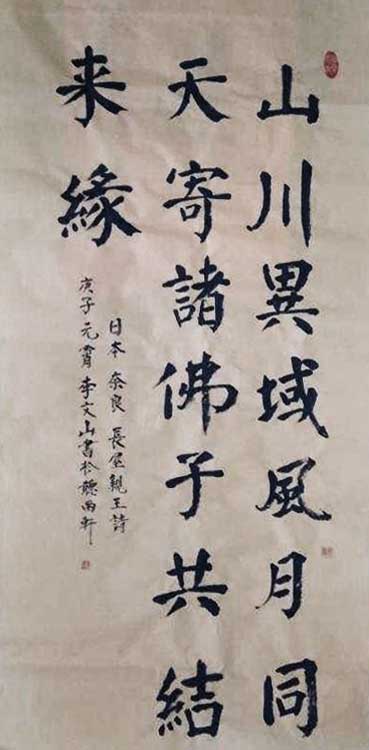 山川異域風月同
天寄諸佛子共結
来緣
日本奈良長屋親王詩
庚子元宵李文山書於聽雨軒